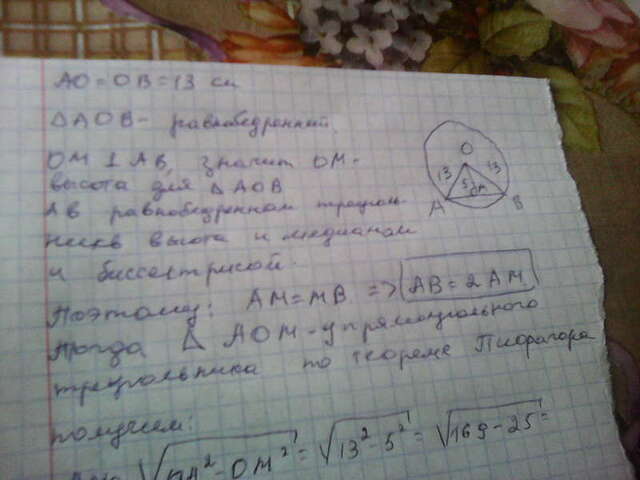 AO = OB = 13 см
△AOB - равнобедренный.
OM ⊥ AB, значит OM -
высота для △AOB
В равнобедренном треуголь-
нике высота и медианой
и биссектрисой.
Поэтому: AM = MB => AB = 2 AM
тогда △ AOM - у прямоугольного
треугольника по теореме Пифагора
получим:
√OA² - OM² = √13² - 5² = √169 - 25 =
O
13
13
5
M
A
B